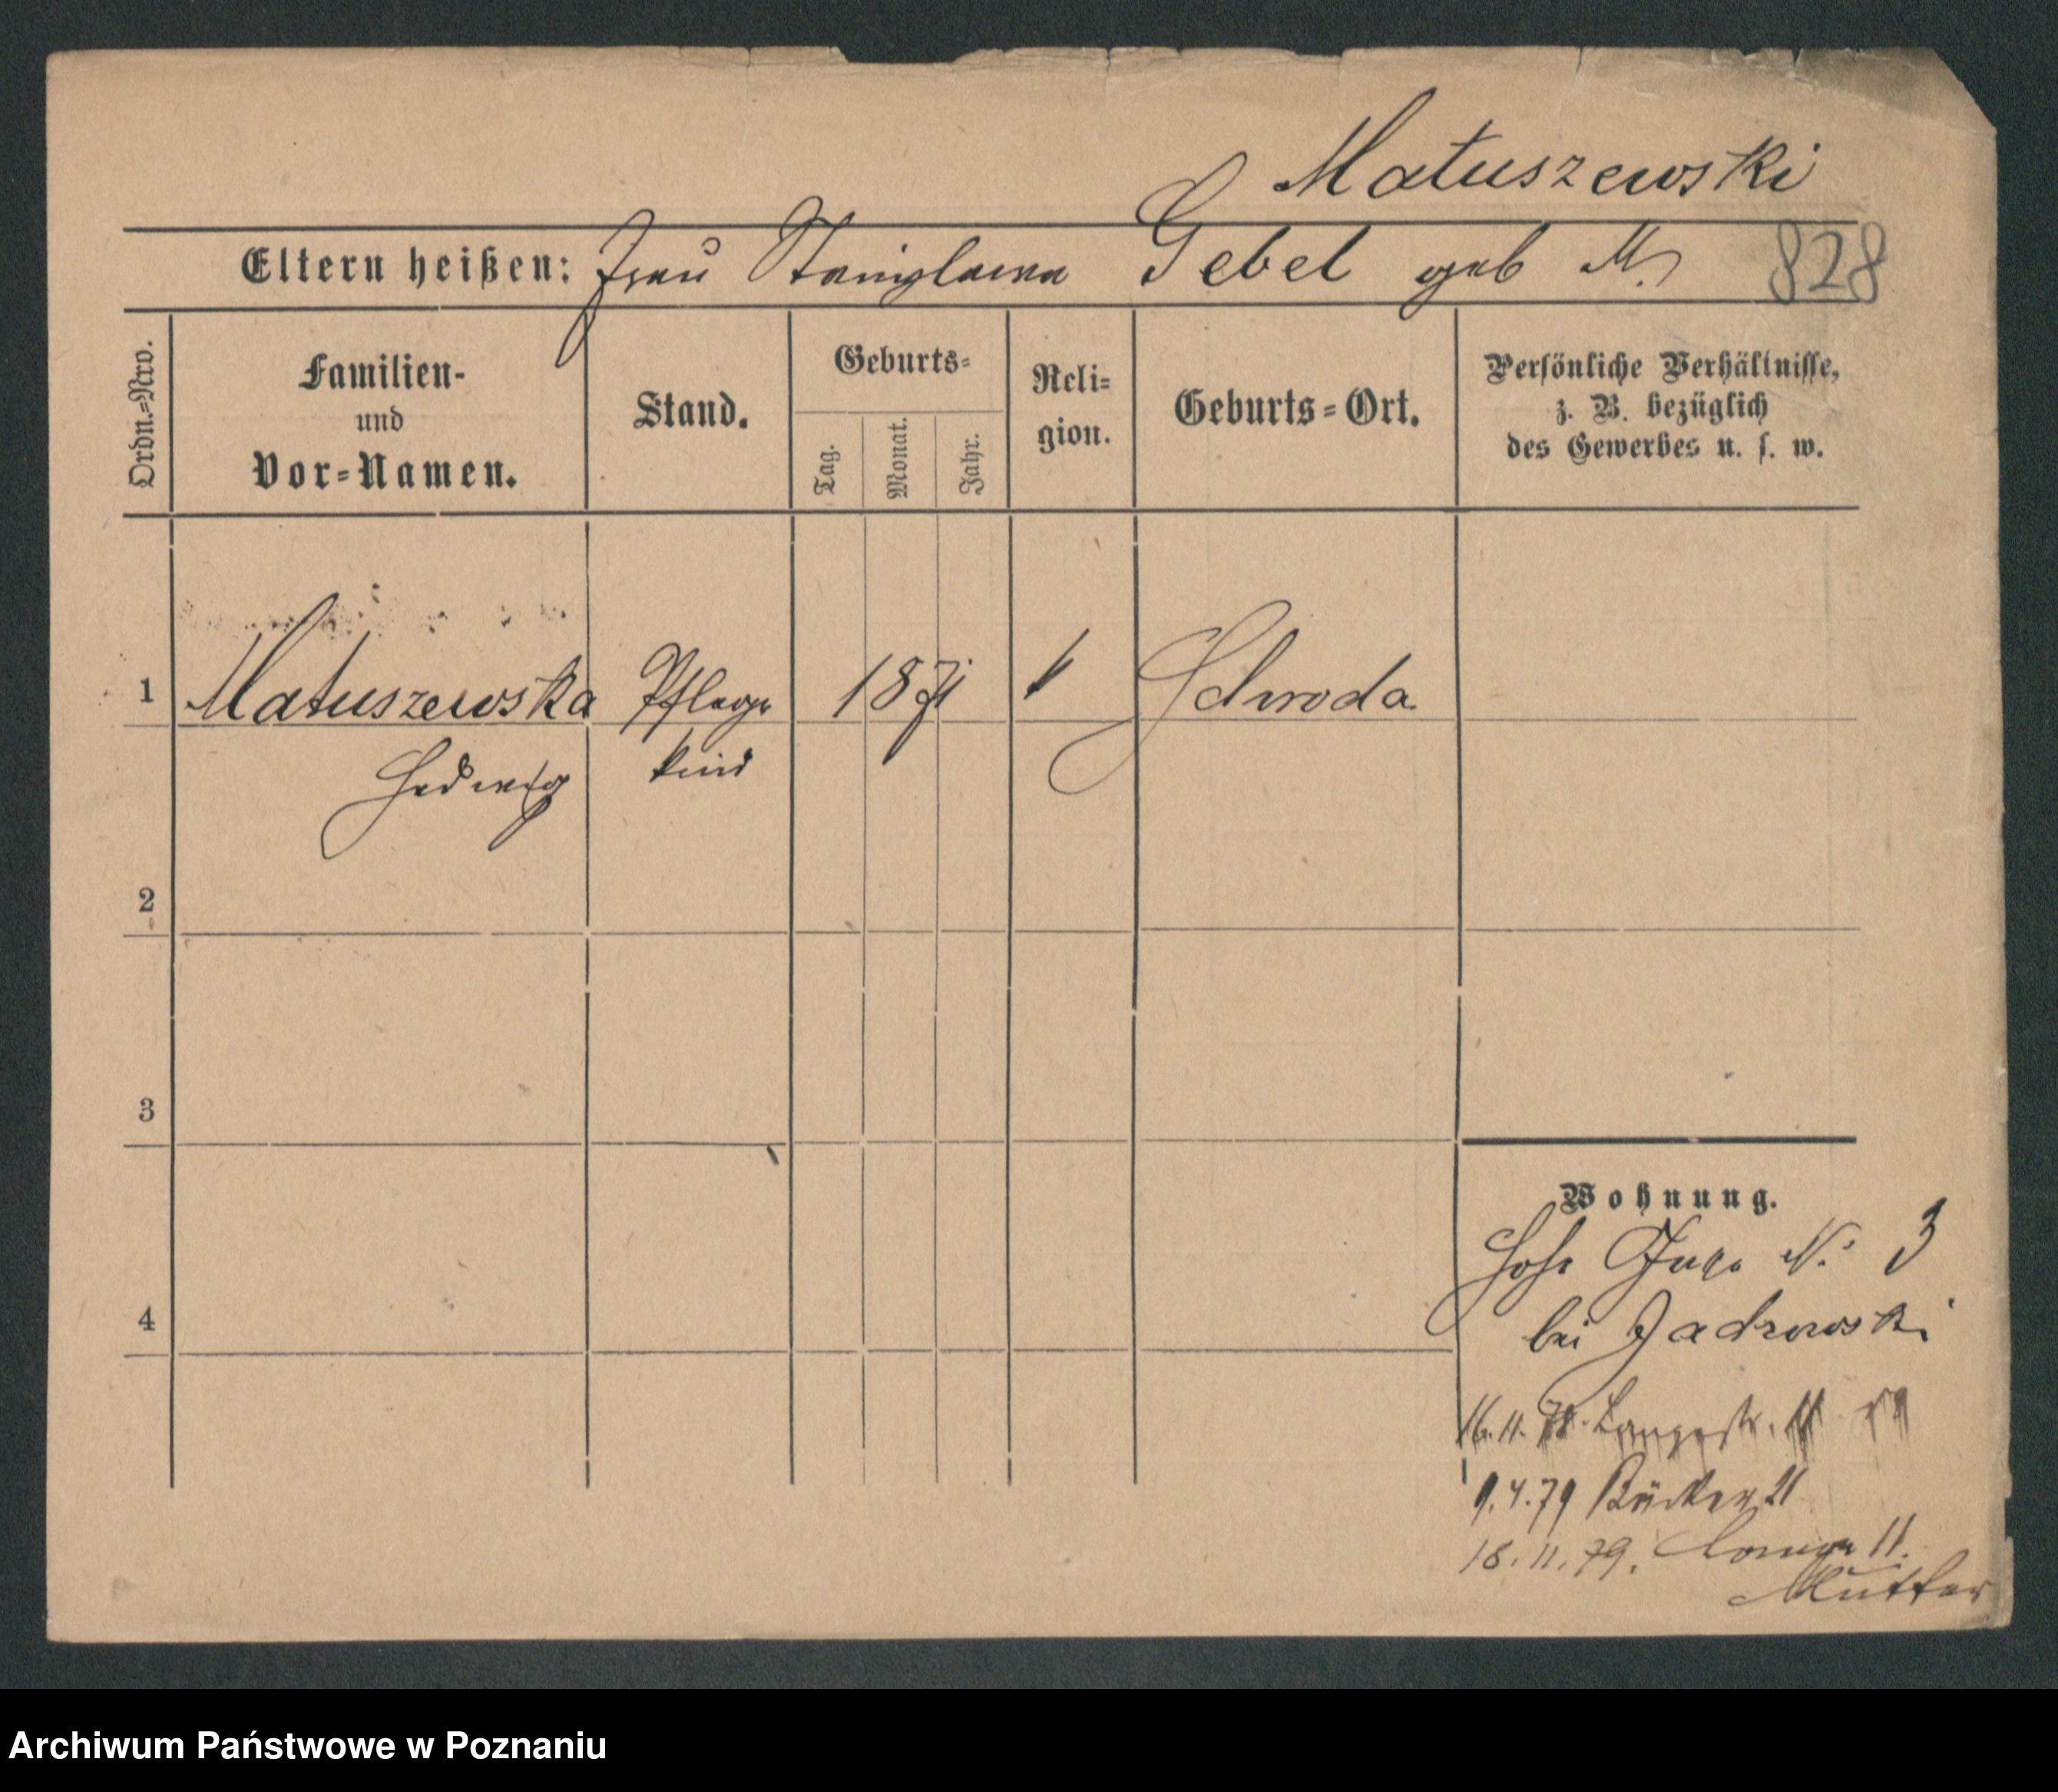 Matuszewski
Eltern heißen: Frau Stanislawa Gebel geb M.
828
Ordn.=Nro.
Familien-
und
Vor=Namen.
Stand.
Geburts=
Tag.
Monat.
Jahr.
Reli=
gion.
Geburts=Ort.
Persönliche Verhältnisse,
z. B. bezüglich
des Gewerbes u. s. w.
1 Matuszewska Pflege 1871 k Schroda
Hedwig kind
2
3
4
Wohnung.
Hohe Gasse N. 3
bei Jadrowski
16.11.78. Langestr. 11
9.4.79 Bäcker 21
18.11.79. Lange 11.
Mutter
Archiwum Państwowe w Poznaniu